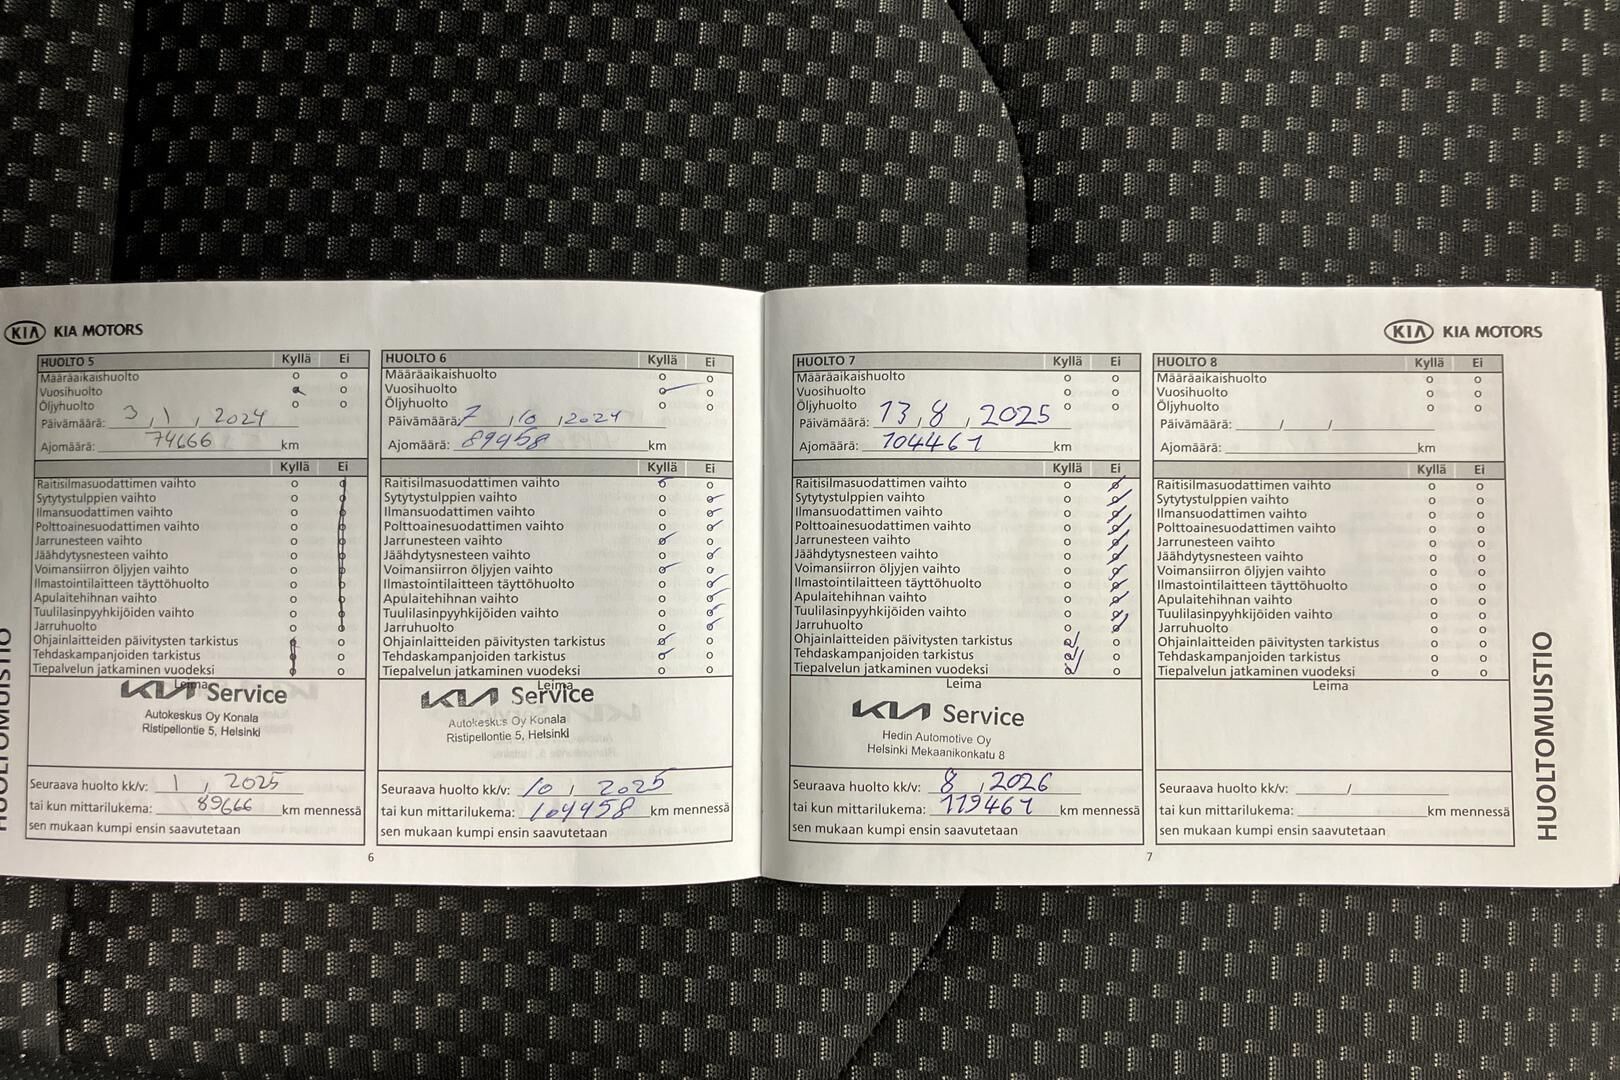 KIA KIA MOTORS
HUOLTO 5 Kyllä Ei
Määräaikaishuolto
Vuosihuolto
Öljyhuolto
Päivämäärä: 3 / 1 / 2024
Ajomäärä: 74666 km
Kyllä Ei
Raitisilmasuodattimen vaihto
Sytytystulppien vaihto
Ilmansuodattimen vaihto
Polttoainesuodattimen vaihto
Jarrunesteen vaihto
Jäähdytysnesteen vaihto
Voimansiirron öljyjen vaihto
Ilmastointilaitteen täyttöhuolto
Apulaitehihnan vaihto
Tuulilasinpyyhkijöiden vaihto
Jarruhuolto
Ohjainlaitteiden päivitysten tarkistus
Tehdaskampanjoiden tarkistus
Tiepalvelun jatkaminen vuodeksi
Leima
KIA Service
Autokeskus Oy Konala
Ristipellontie 5, Helsinki
Seuraava huolto kk/v: 1 / 2025
tai kun mittarilukema: 89666 km mennessä
sen mukaan kumpi ensin saavutetaan
HUOLTO 6 Kyllä Ei
Määräaikaishuolto
Vuosihuolto
Öljyhuolto
Päivämäärä: 7 / 10 / 2024
Ajomäärä: 89458 km
Kyllä Ei
Raitisilmasuodattimen vaihto
Sytytystulppien vaihto
Ilmansuodattimen vaihto
Polttoainesuodattimen vaihto
Jarrunesteen vaihto
Jäähdytysnesteen vaihto
Voimansiirron öljyjen vaihto
Ilmastointilaitteen täyttöhuolto
Apulaitehihnan vaihto
Tuulilasinpyyhkijöiden vaihto
Jarruhuolto
Ohjainlaitteiden päivitysten tarkistus
Tehdaskampanjoiden tarkistus
Tiepalvelun jatkaminen vuodeksi
Leima
KIA Service
Autokeskus Oy Konala
Ristipellontie 5, Helsinki
Seuraava huolto kk/v: 10 / 2025
tai kun mittarilukema: 104458 km mennessä
sen mukaan kumpi ensin saavutetaan
6
HUOLTOMUISTIO
KIA KIA MOTORS
HUOLTO 7 Kyllä Ei
Määräaikaishuolto
Vuosihuolto
Öljyhuolto
Päivämäärä: 13 / 8 / 2025
Ajomäärä: 104461 km
Kyllä Ei
Raitisilmasuodattimen vaihto
Sytytystulppien vaihto
Ilmansuodattimen vaihto
Polttoainesuodattimen vaihto
Jarrunesteen vaihto
Jäähdytysnesteen vaihto
Voimansiirron öljyjen vaihto
Ilmastointilaitteen täyttöhuolto
Apulaitehihnan vaihto
Tuulilasinpyyhkijöiden vaihto
Jarruhuolto
Ohjainlaitteiden päivitysten tarkistus
Tehdaskampanjoiden tarkistus
Tiepalvelun jatkaminen vuodeksi
Leima
KIA Service
Hedin Automotive Oy
Helsinki Mekaanikonkatu 8
Seuraava huolto kk/v: 8 / 2026
tai kun mittarilukema: 119461 km mennessä
sen mukaan kumpi ensin saavutetaan
HUOLTO 8 Kyllä Ei
Määräaikaishuolto
Vuosihuolto
Öljyhuolto
Päivämäärä: / /
Ajomäärä: km
Kyllä Ei
Raitisilmasuodattimen vaihto
Sytytystulppien vaihto
Ilmansuodattimen vaihto
Polttoainesuodattimen vaihto
Jarrunesteen vaihto
Jäähdytysnesteen vaihto
Voimansiirron öljyjen vaihto
Ilmastointilaitteen täyttöhuolto
Apulaitehihnan vaihto
Tuulilasinpyyhkijöiden vaihto
Jarruhuolto
Ohjainlaitteiden päivitysten tarkistus
Tehdaskampanjoiden tarkistus
Tiepalvelun jatkaminen vuodeksi
Leima
Seuraava huolto kk/v: /
tai kun mittarilukema: km mennessä
sen mukaan kumpi ensin saavutetaan
7
HUOLTOMUISTIO